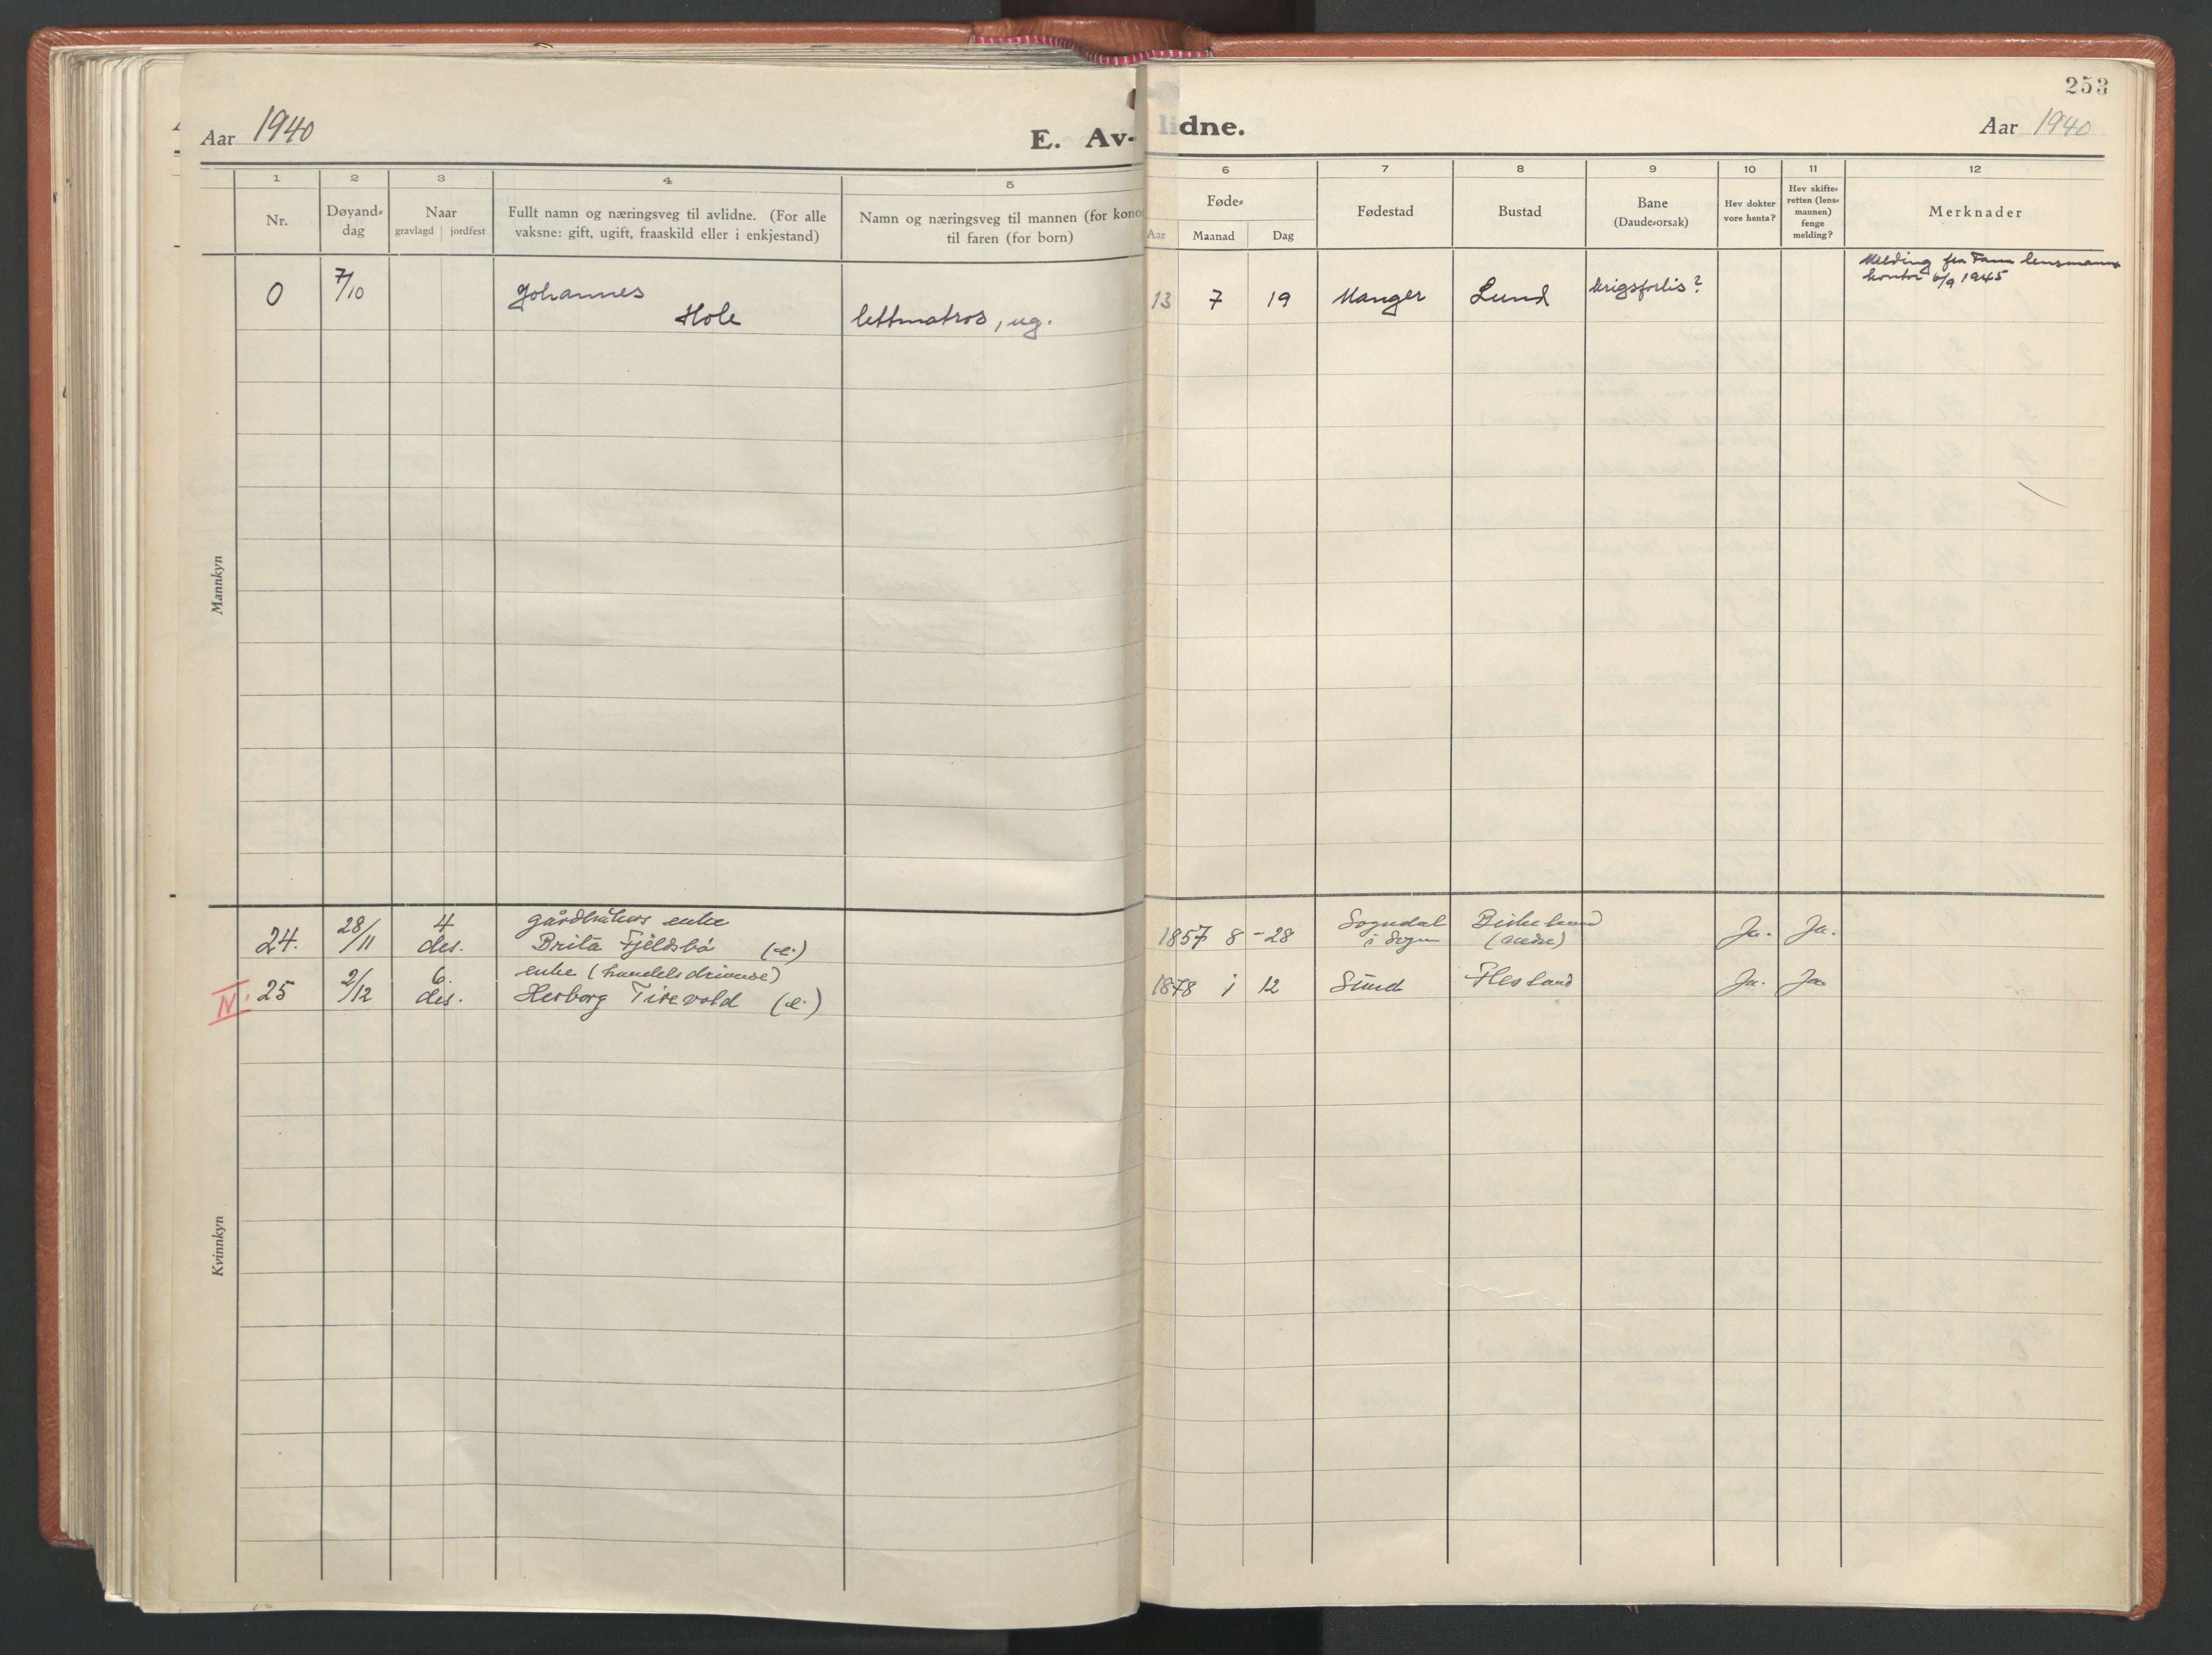 253
Aar 1940
E. Av-lidne.
Aar 1940
1 2 3 4 5 6 7 8 9 10 11 12
Nr.
Døyand-
dag
Naar
gravlagd jordfest
Fullt namn og næringsveg til avlidne. (For alle
vaksne: gift, ugift, fraaskild eller i enkjestand)
Namn og næringsveg til mannen (for kono
til faren (for born)
Føde-
Aar Maanad Dag
Fødestad
Bustad
Bane
(Daude-orsak)
Hev dokter
vore henta?
Hev skifte-
retten (lens-
mannen)
fenge
melding?
Merknader
Mannkyn
0 7/10 Johannes
Hole lettmatros, ug. 13 7 19 Manger Lund krigsforlis?
Melding fra Fana lensmanns
kontor 6/9 1945
Kvinnkyn
gårdbrukers enke
24. 28/11 4 des. Brita Fjeldsbø (e.) 1857 8-28 Sogndal
i Sogn Birkeland
(aldw) Ja. Ja.
enke (handelsdrivende)
N. 25 2/12 6. des. Herborg Tirevold (e.) 1878 1 12 Sund Flesland Ja. Ja